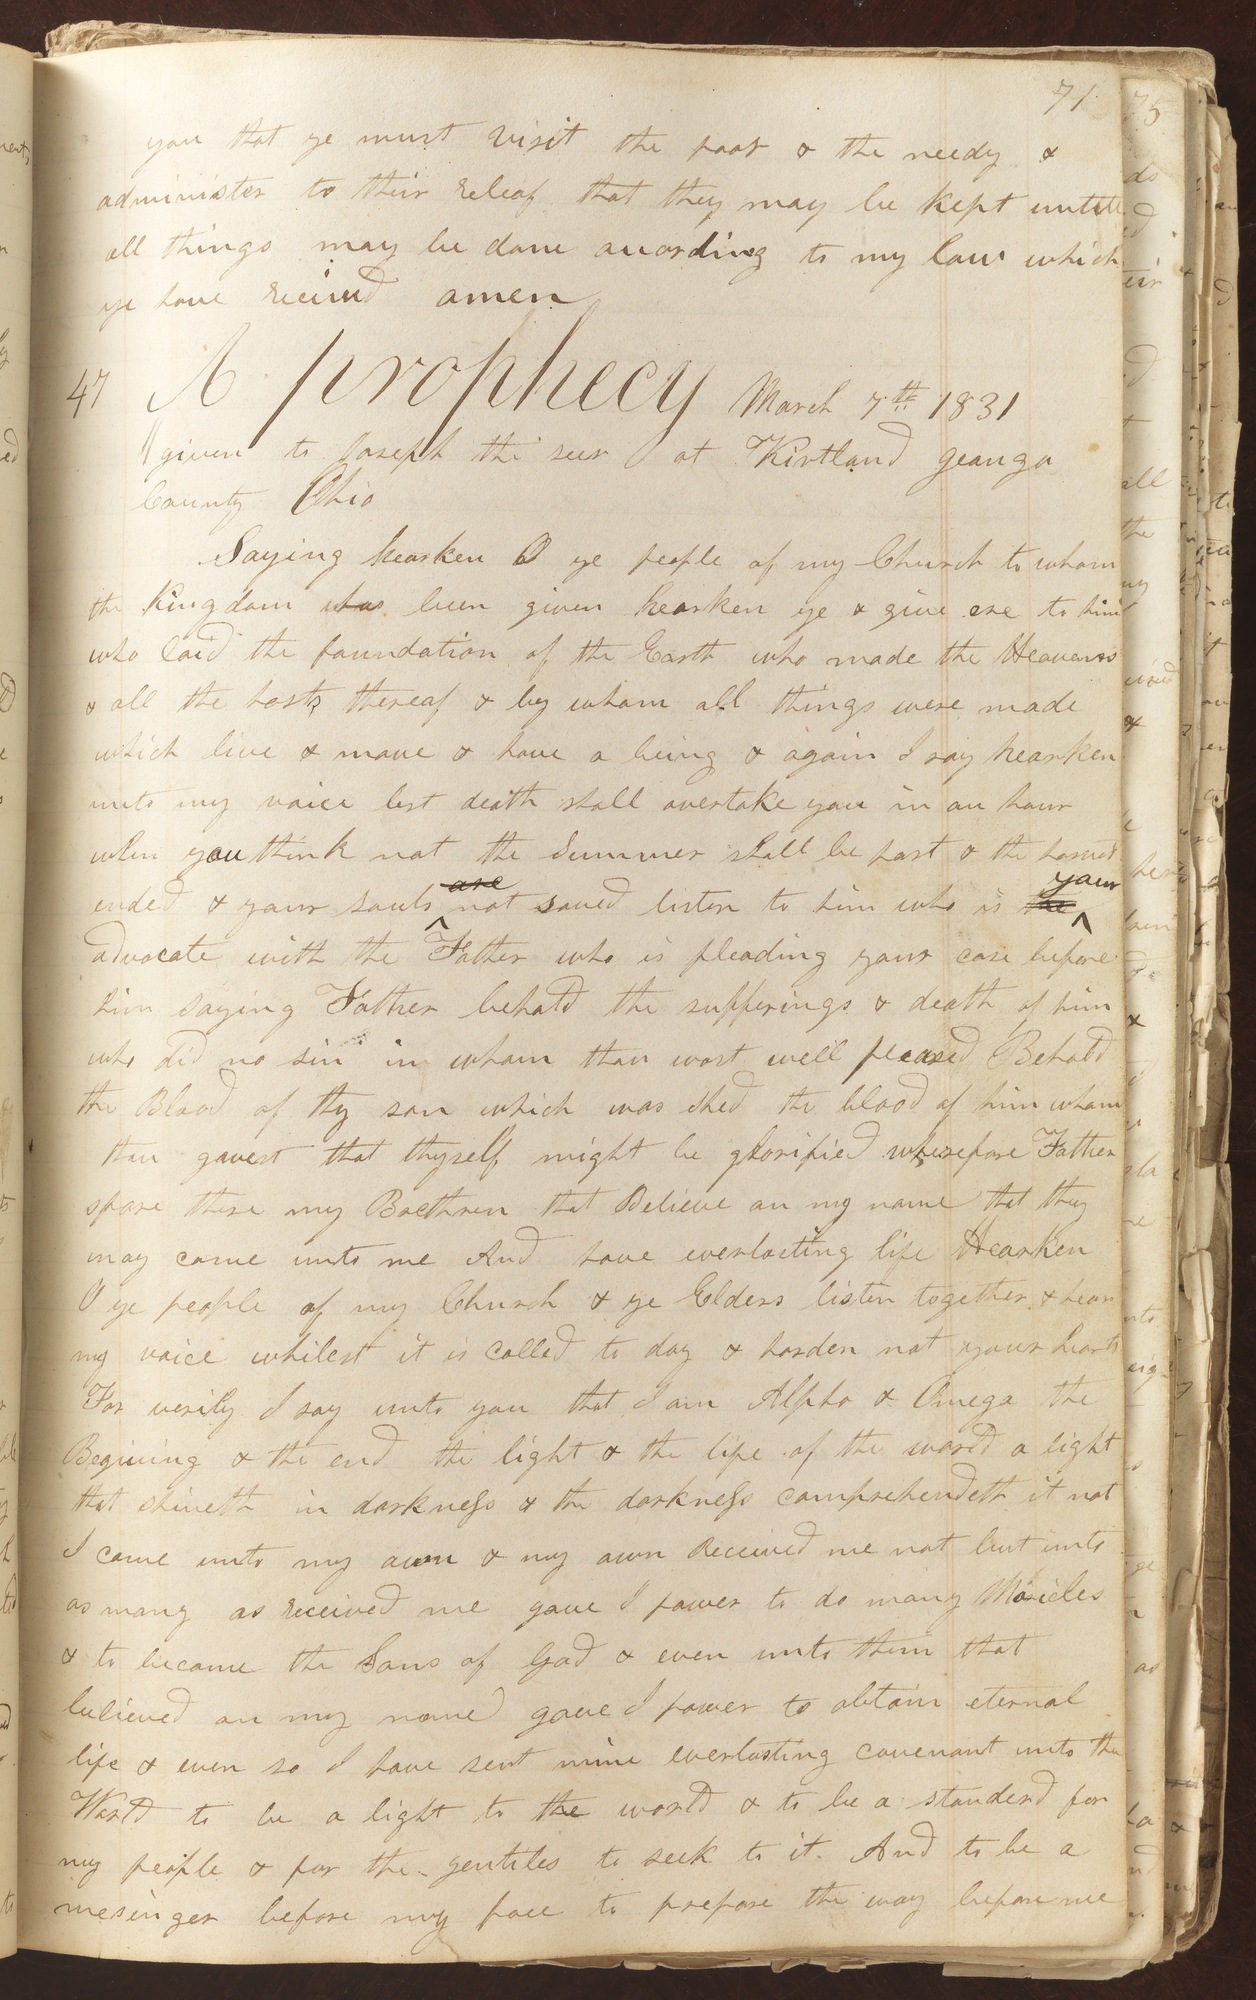 71
you that ye must visit the poor & the needy &
administer to their releaf that they may be kept untill
all things may be done acording to my law which
ye have received amen
47 A prophecy March 7th 1831
given to Joseph the seer at Kirtland geauga
County Ohio
Saying hearken O ye people of my Church to whom
the Kingdom has been given hearken ye & give ere to him
who laid the foundation of the Earth who made the Heavens
& all the hosts thereof & by whom all things were made
which live & move & have a being & again I say hearken
unto my voice lest death shall overtake you in an hour
when you think not the Summer shall be past & the harvest
are your
ended & your souls not saved listen to him who is the
advocate with the Father who is pleading your case before
him saying Father behold the sufferings & death of him
who did no sin in whom thou wast well pleased Behold
the Blood of thy son which was shed the blood of him whom
thou gavest that thyself might be glorified wherefore Father
spare these my Brethren that Believe on my name that they
may come unto me And have everlasting life Hearken
O ye people of my Church & ye Elders listen together & hear
my voice whilest it is called to day & harden not your hearts
For verily I say unto you that I am Alpha & Omega the
Begining & the end the light & the life of the world a light
that shineth in darkness & the darkness comprehendeth it not
I came unto my own & my own received me not but unto
as many as received me gave I power to do many Maricles
& to become the Sons of God & even unto them that
believed on my name gave I power to obtain eternal
life & even so I have sent mine everlasting covenant unto the
World to be a light to the world & to be a standerd for
my people & for the gentiles to seek to it. And to be a
mesinger before my face to prepare the way before me